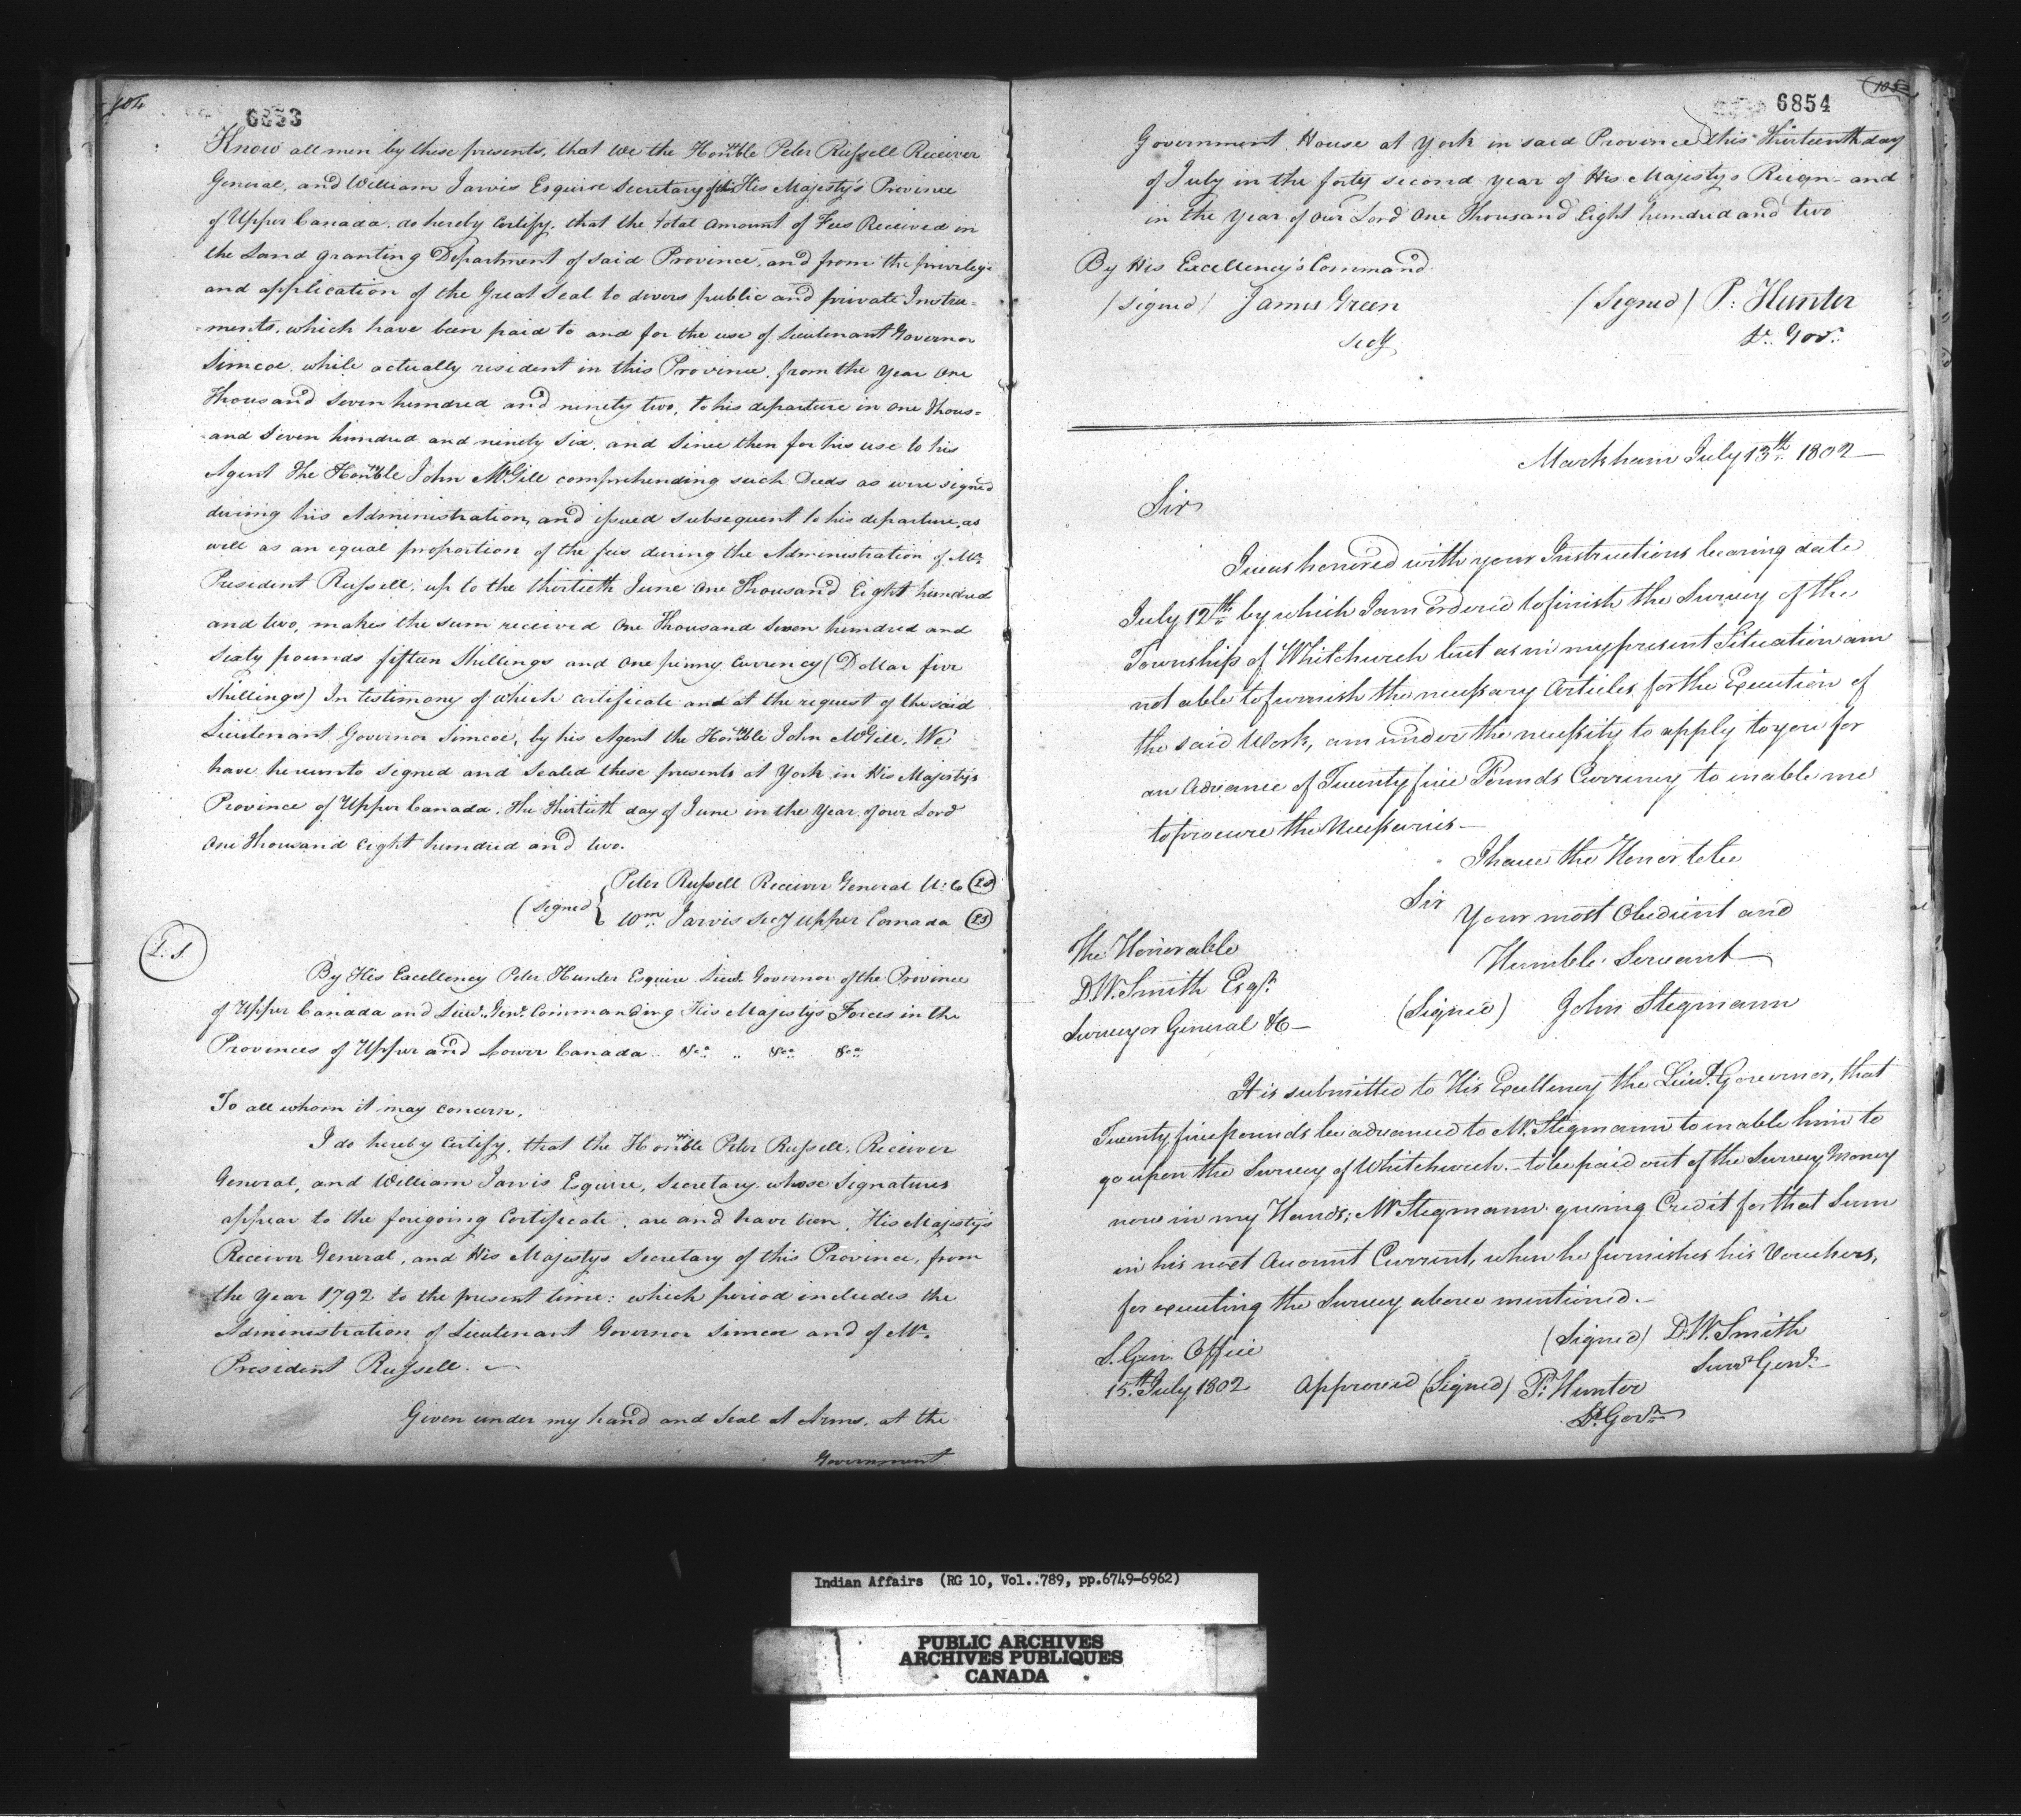 104
6853
Know all men by these presents, that We the Honble Peter Russell Receiver
General, and William Jarvis Esquire Secretary of His Majesty's Province
of Upper Canada, do hereby Certify, that the total amount of Fees Received in
the Land granting Department of said Province, and from the privilege
and application of the Great Seal to divers public and private Instru=
=ments, which have been paid to and for the use of Lieutenant Governor
Simcoe, while actually resident in this Province, from the year One
Thousand Seven hundred and ninety two, to his departure in One Thous=
=and Seven hundred and ninety Six, and Since then for his use to his
Agent The Honble John McGill comprehending such Deeds as were signed
during his Administration, and issued subsequent to his departure, as
well as an equal proportion of the fees during the Administration of Mr.
President Russell, up to the thirtieth June One Thousand Eight hundred
and two, makes the sum received One Thousand Seven hundred and
Sixty pounds fifteen Shillings and One penny Currency (Dollar five
Shillings) In testimony of which certificate and at the request of the said
Lieutenant Governor Simcoe, by his Agent the Honble John McGill, We
have hereunto Signed and Sealed these presents at York in His Majesty's
Province of Upper Canada, the thirtieth day of June in the Year of our Lord
One Thousand Eight hundred and two.
(Signed { Peter Russell Receiver General U: C
Wm. Jarvis Secy Upper Canada
L: S
By His Excellency Peter Hunter Esquire Lieut. Governor of the Province
of Upper Canada and Lieut. Genl. Commanding His Majesty's Forces in the
Provinces of Upper and Lower Canada .. &ca .. &ca &ca
To all whom it may Concern.
I do hereby Certify, that the Honble Peter Russell, Receiver
General, and William Jarvis Esquire, Secretary whose Signatures
appear to the foregoing Certificate, are and have been, His Majesty's
Receiver General, and His Majestys Secretary of this Province, from
the Year 1792 to the present time: which period includes the
Administration of Lieutenant Governor Simcoe and of Mr.
President Russell.
Given under my hand and Seal at Arms, at the
Government
105
6854
Government House at York in said Province this Thirteenth day
of July in the forty second year of His Majestys Reign - and
in the Year of Our Lord One Thousand Eight hundred and two
By His Excellency's Command
(signed) James Green
Secy
(Signed) P: Hunter
Lt. Govr.
Markham July 13th 1802
Sir
I was honored with your Instructions bearing date
July 12th by which I am ordered to finish the Survey of the
Township of Whitchurch but as in my present Situation am
not able to furnish the necessary Articles for the Execution of
the said Work, am under the necessity to apply to you for
an Advance of Twenty five Pounds Currency to inable me
to procure the Necessaries -
I have the Honor to be
Sir
Your most Obedient and
Humble Servant
(Signed) John Stegmann
The Honorable
D.W. Smith Esqr.
Surveyor General &c -
It is submitted to His Excellency the Lieut. Governor, that
Twenty five pounds be advanced to Mr. Stegmann to inable him to
go upon the Survey of Whitchurch. - to be paid out of the Survey Money
now in my Hands; Mr Stegmann giving Credit for that Sum
in his next Account Current, when he furnishes his Vouchers,
for executing the Survey above mentioned. -
(Signed) D.W. Smith
Survr. Genl.
S. Gen. Office
15th July 1802 Approved (Signed) P: Hunter
Lt. Govr.
Indian Affairs (RG 10, Vol..789, pp.6749-6962)
PUBLIC ARCHIVES
ARCHIVES PUBLIQUES
CANADA